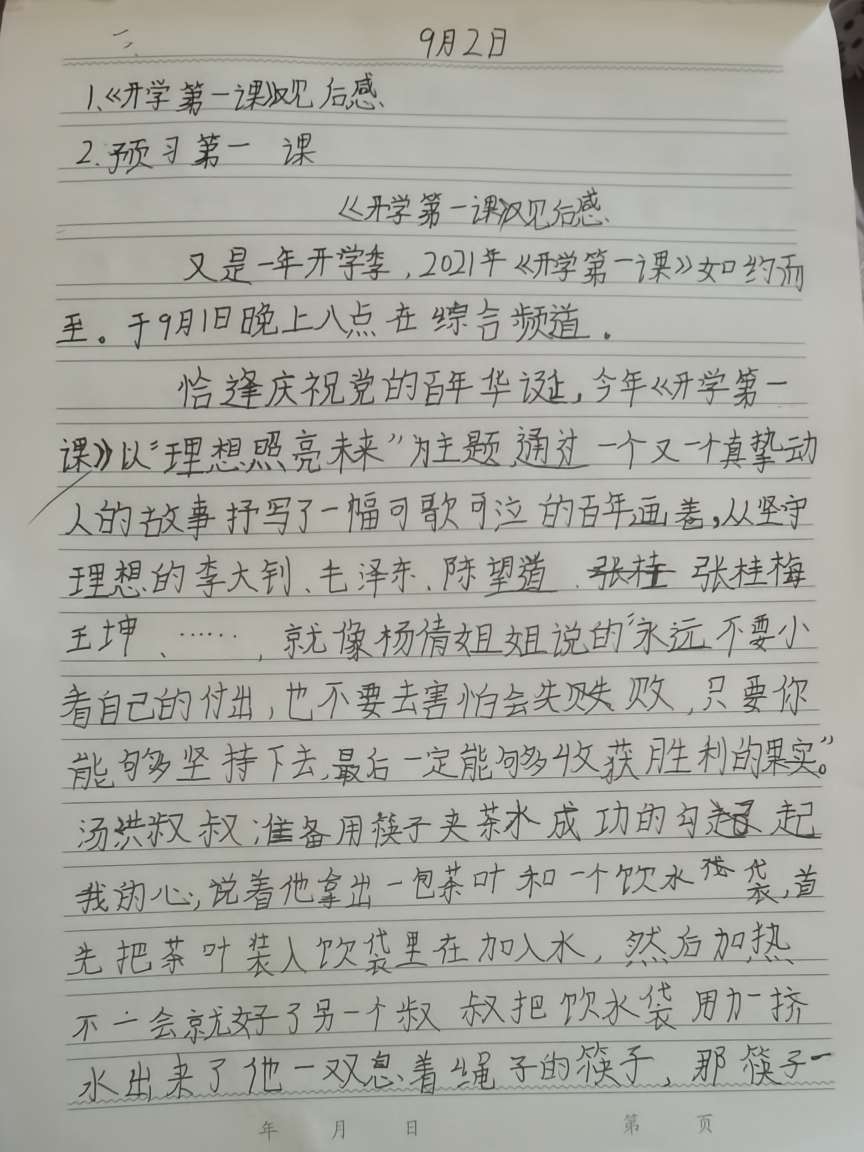 二、 9月2日
1.《开学第一课》观后感
2.预习第一课
《开学第一课》观后感
又是一年开学季,2021年《开学第一课》如约而
至。于9月1日晚上八点在综合频道.
恰逢庆祝党的百年华诞,今年《开学第一
课》以“理想照亮未来”为主题,通过一个又一个真挚动
人的故事抒写了一幅可歌可泣的百年画卷,从坚守
理想的李大钊、毛泽东、陈望道、张桂梅
王坤、……,就像杨倩姐姐说的“永远不要小
看自己的付出,也不要去害怕会失败,只要你
能够坚持下去,最后一定能够收获胜利的果实”。
汤洪叔叔准备用筷子夹茶水成功的勾起
我的心,说着他拿出一包茶叶和一个饮水袋,首
先把茶叶装入饮袋里在加入水,然后加热
不一会就好了另一个叔叔把饮水袋用力一挤
水出来了他一双息着绳子的筷子,那筷子一
年 月 日 第 页